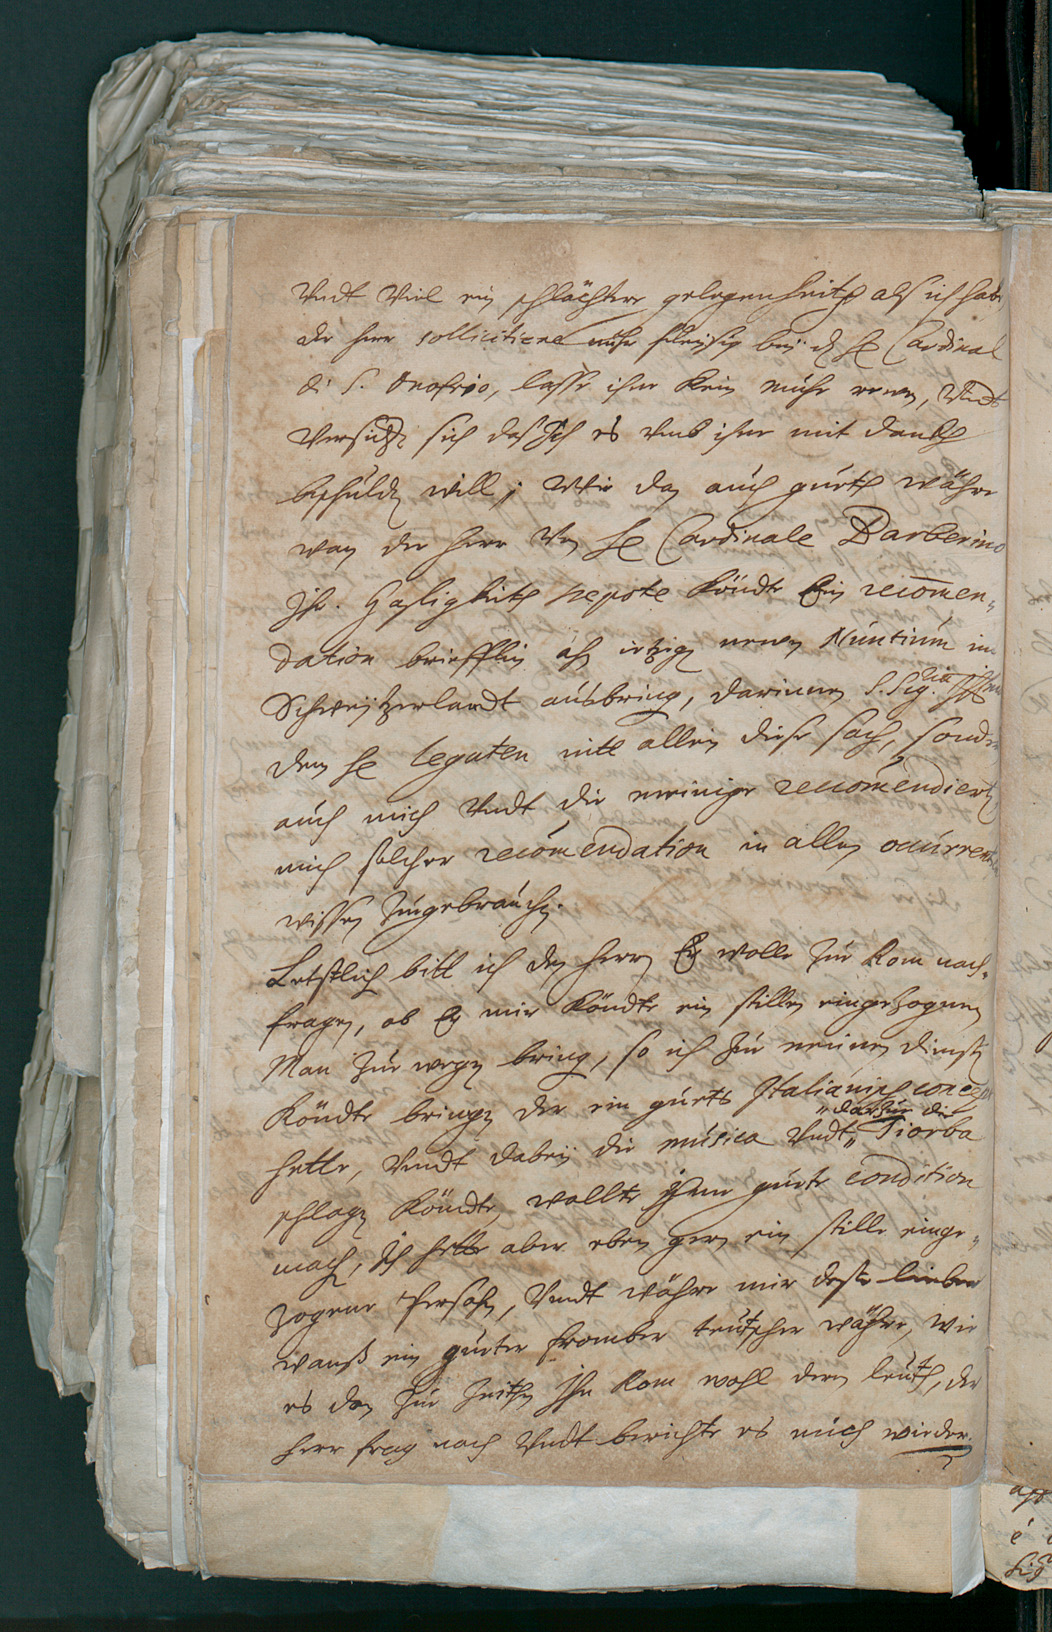 Vndt Viel ein schlächtere gelegenheith als ich habe
der herr sollicitiere nuhr fleißig bei d H Cardinal
di S. Onofrio, lasse ihm kein mühe rewen, Vndt
Versichere sich das Ich es Vmb ihne mit danckh
beschulden will, Wie dan auch gueth währe
wan der herr Von H Cardinale Barberino
Ihr. Hayligkeith nepote köndte Ein recom̄en„
dation brieffle an ietzigen newen Nuntium im
Schweitzerlandt ausbringen, darinnen S. Sig.ria
dem H legaten nitt allein diese sach, sonder
auch mich Vndt die meinige recom̄endierte
mich solcher recom̄endation in allen ocurrentien
wissen zuegebrauchen.
Letstlich bitt ich den herren Er wolle zue Rom nach„
fragen, ob Er mir köndte ein stillen eingezognen
Man zue wegen bringen, so ich zue meinen diensten
köndte bringen der ein guets Italianisch concept
hette, Vndt dabey die musica Vndt „darzue die„ Tiorba
schlagen köndte, wollte ihme guete condition
machen, Ich hette aber eben gern ein stille einge„
zogene Persohn, Vndt währe mir desto lieber
wanß ein gueter fromber teutscher währe, wie
es dan zue Zeithen Zue Rom wohl deren leuth, der
herr frag nach Vndt berichte es mich wieder.